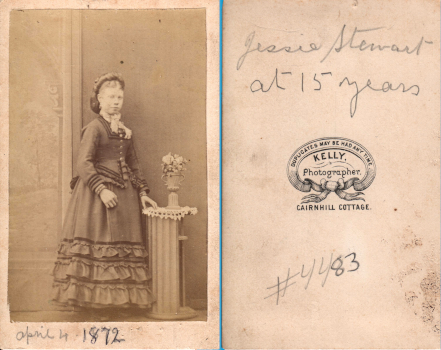 april 4 1872
Jessie Stewart
at 15 years
DUPLICATES MAY BE HAD ANY TIME
KELLY,
Photographer.
CAIRNHILL COTTAGE.
#4483